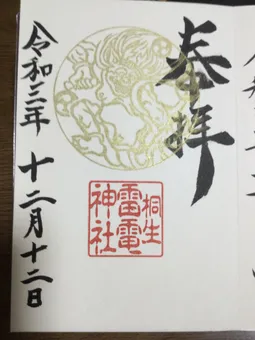 奉拝
桐生
雷電
神社
令和三年 十二月十二日